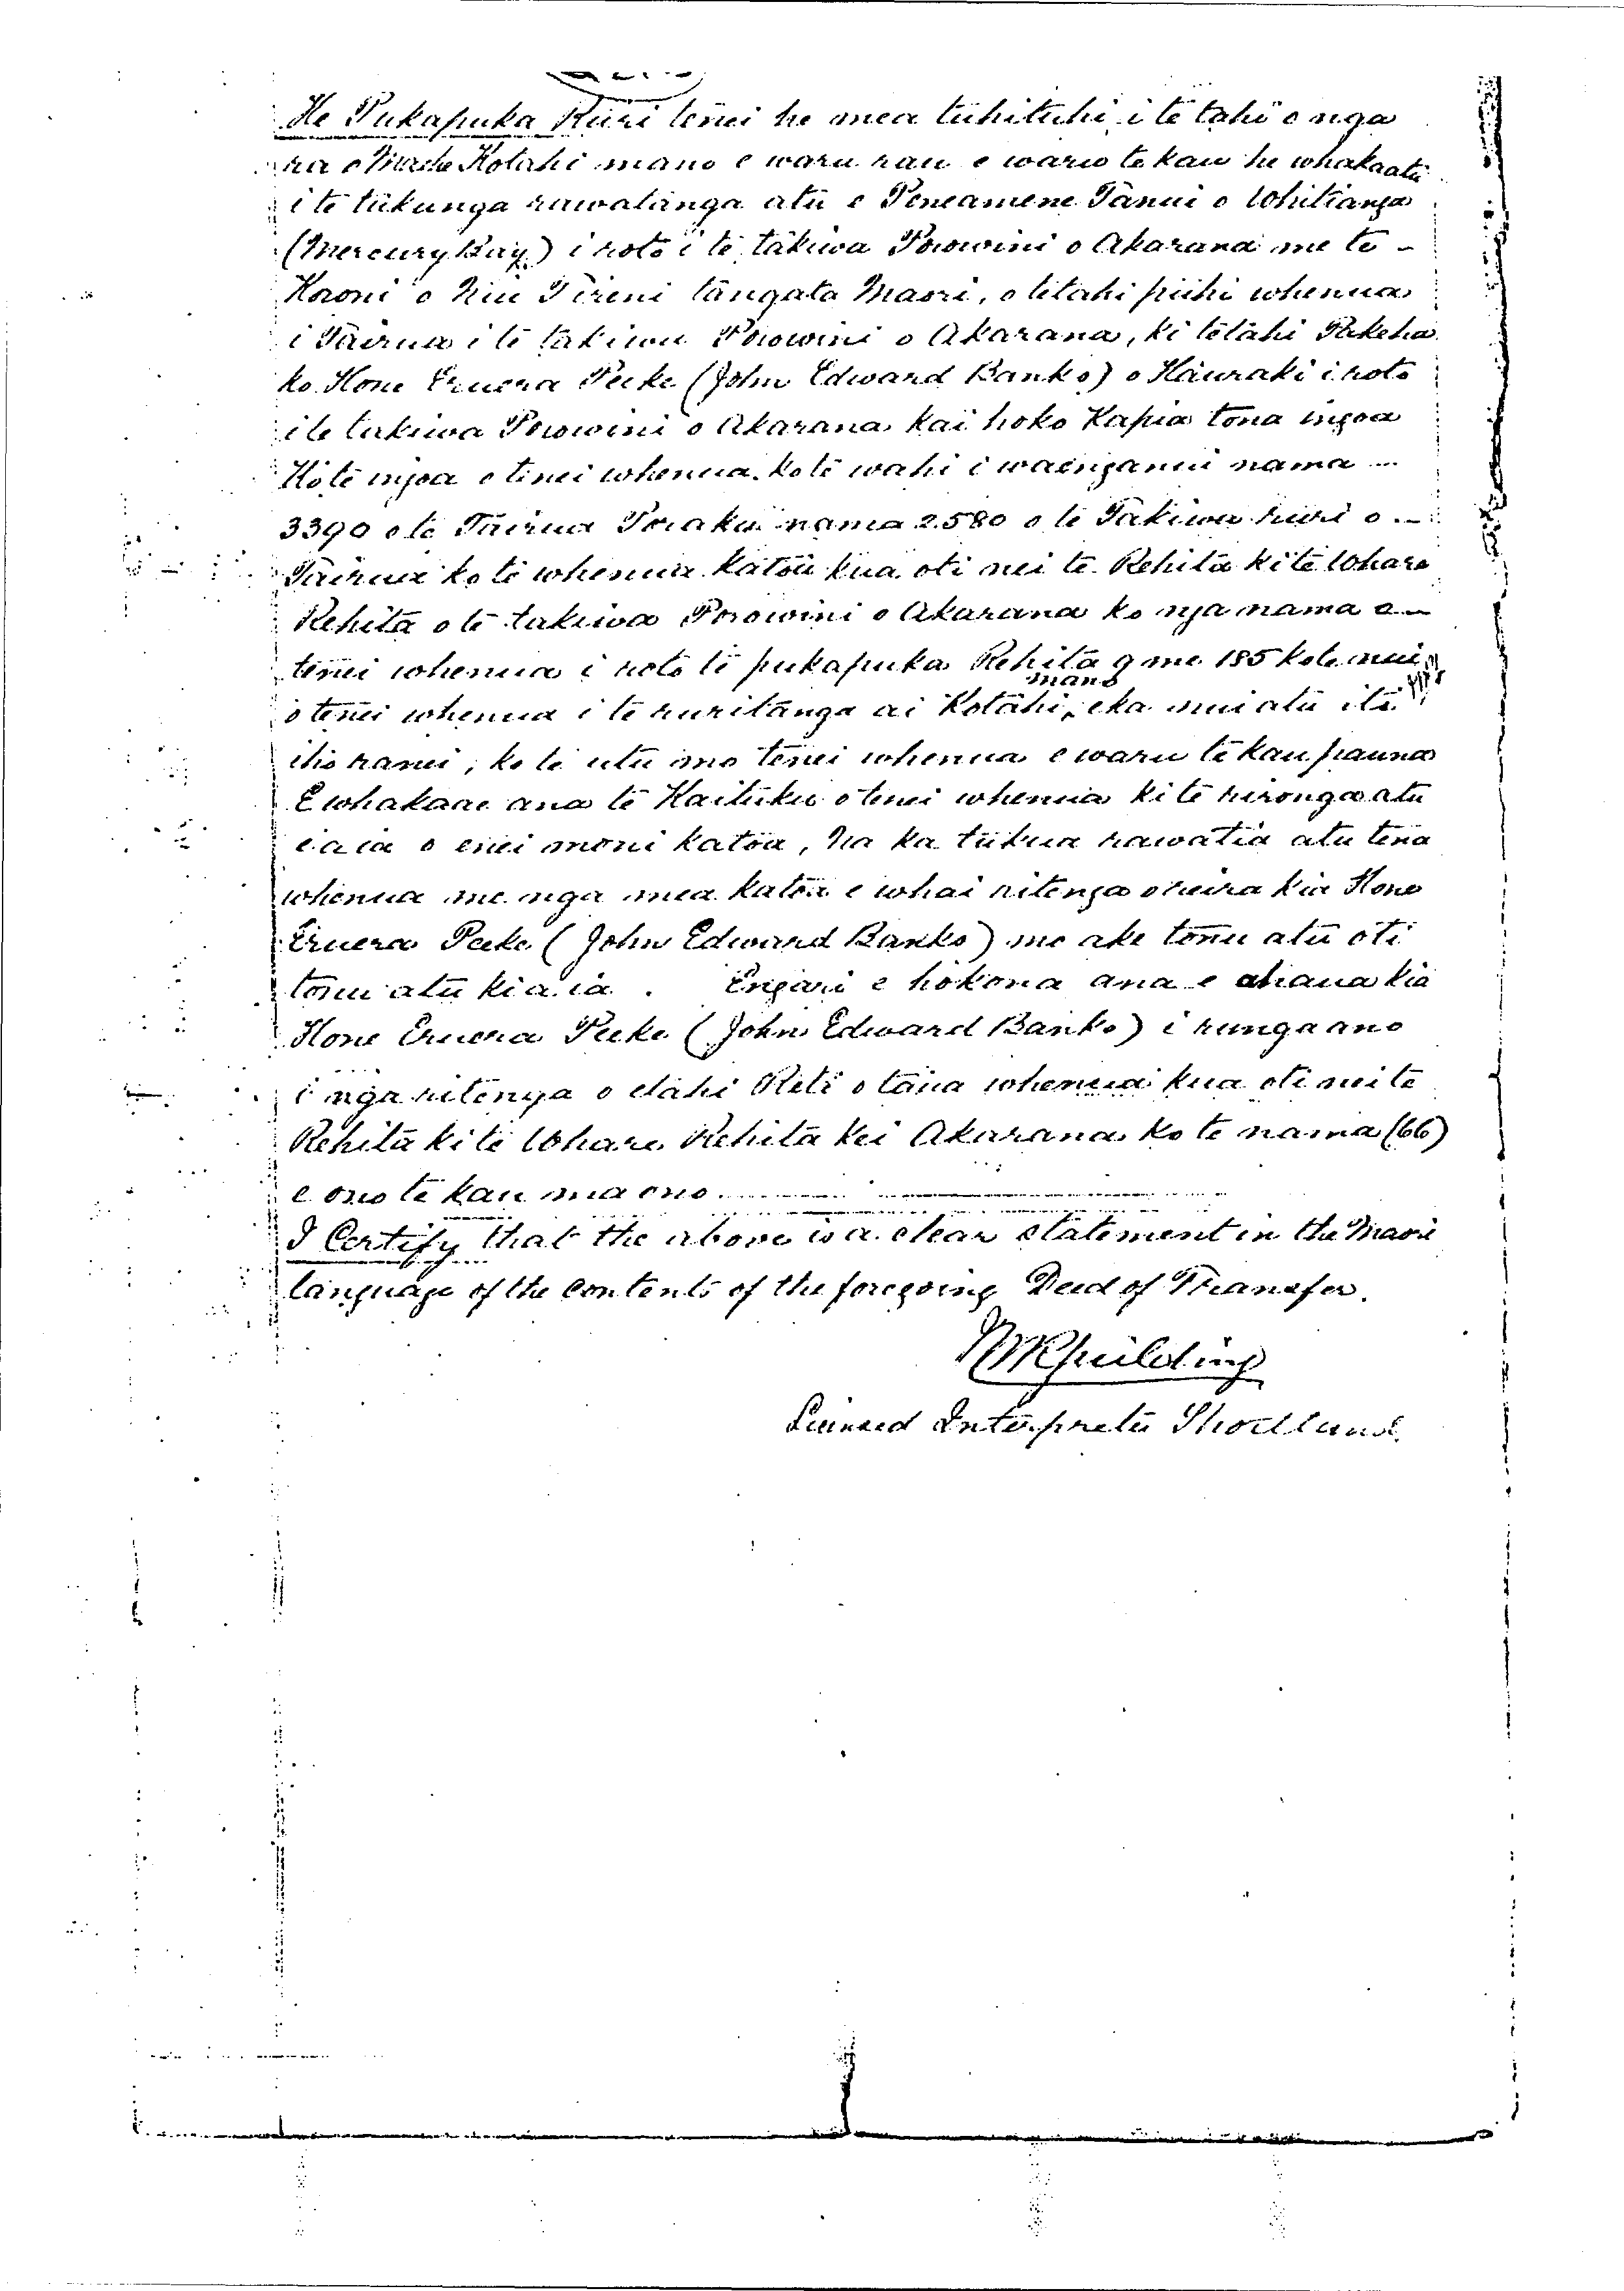 He Pukapuka Ruri tenei he mea tuhituhi i te tahi o nga
ra o Maehe Kotahi mano e waru rau e waru te kau he whakaatu
i te tukunga rawatanga atu e Peneamene Tanui o Whitianga
(Mercury Bay) i roto i te takiwa Porowini o Akarana me te -
Koroni o Niu Tireni tangata Maori, o tetahi piihi whenua
i Tairua i te takiwa Porowini o Akarana, ki tetahi Pakeha
ko Hone Eruera Peeke (John Edward Banks) o Hauraki i roto
i te takiwa Porowini o Akarana kai hoko Kapia tona ingoa
Ko te ingoa o tenei whenua. ko te wahi i waenganui nama ...
3390 o te Tairua Poraka nama 2580 o te Takiwa ruri o
Tairua ko te whenua katoa kua oti nei te Rehita ki te Whare
Rehita o te takiwa Porowini o Akarana ko nga nama o
tenei whenua i roto te pukapuka Rehita 9 me 185 ko te nui
mano
o tenei whenua i te ruritanga ai Kotahi, eka nui atu iti
iho ranei, ko te utu mo tenei whenua e waru te kau pauna
E whakaae ana te Kaituku o tenei whenua ki te rironga atu
i a ia o enei moni katoa, Na ka tukua rawatia atu tena
whenua me nga mea katoa e whai ritenga o reira kia Hone
Eruera Peeke (John Edward Banks) mo ake tonu atu oti
tonu atu ki a ia. Engari e hokona ana e ahaua kia
Hone Eruera Peeke (John Edward Banks) i runga ano
i nga ritenga o etahi Reti o taua whenua kua oti nei te
Rehita ki te Whare Rehita kei Akarana ko te nama (66)
e ono te kau ma ono
I Certify that the above is a clear statement in the Maori
language of the contents of the foregoing Deed of Transfer.
Licensed Interpreter Shortland.